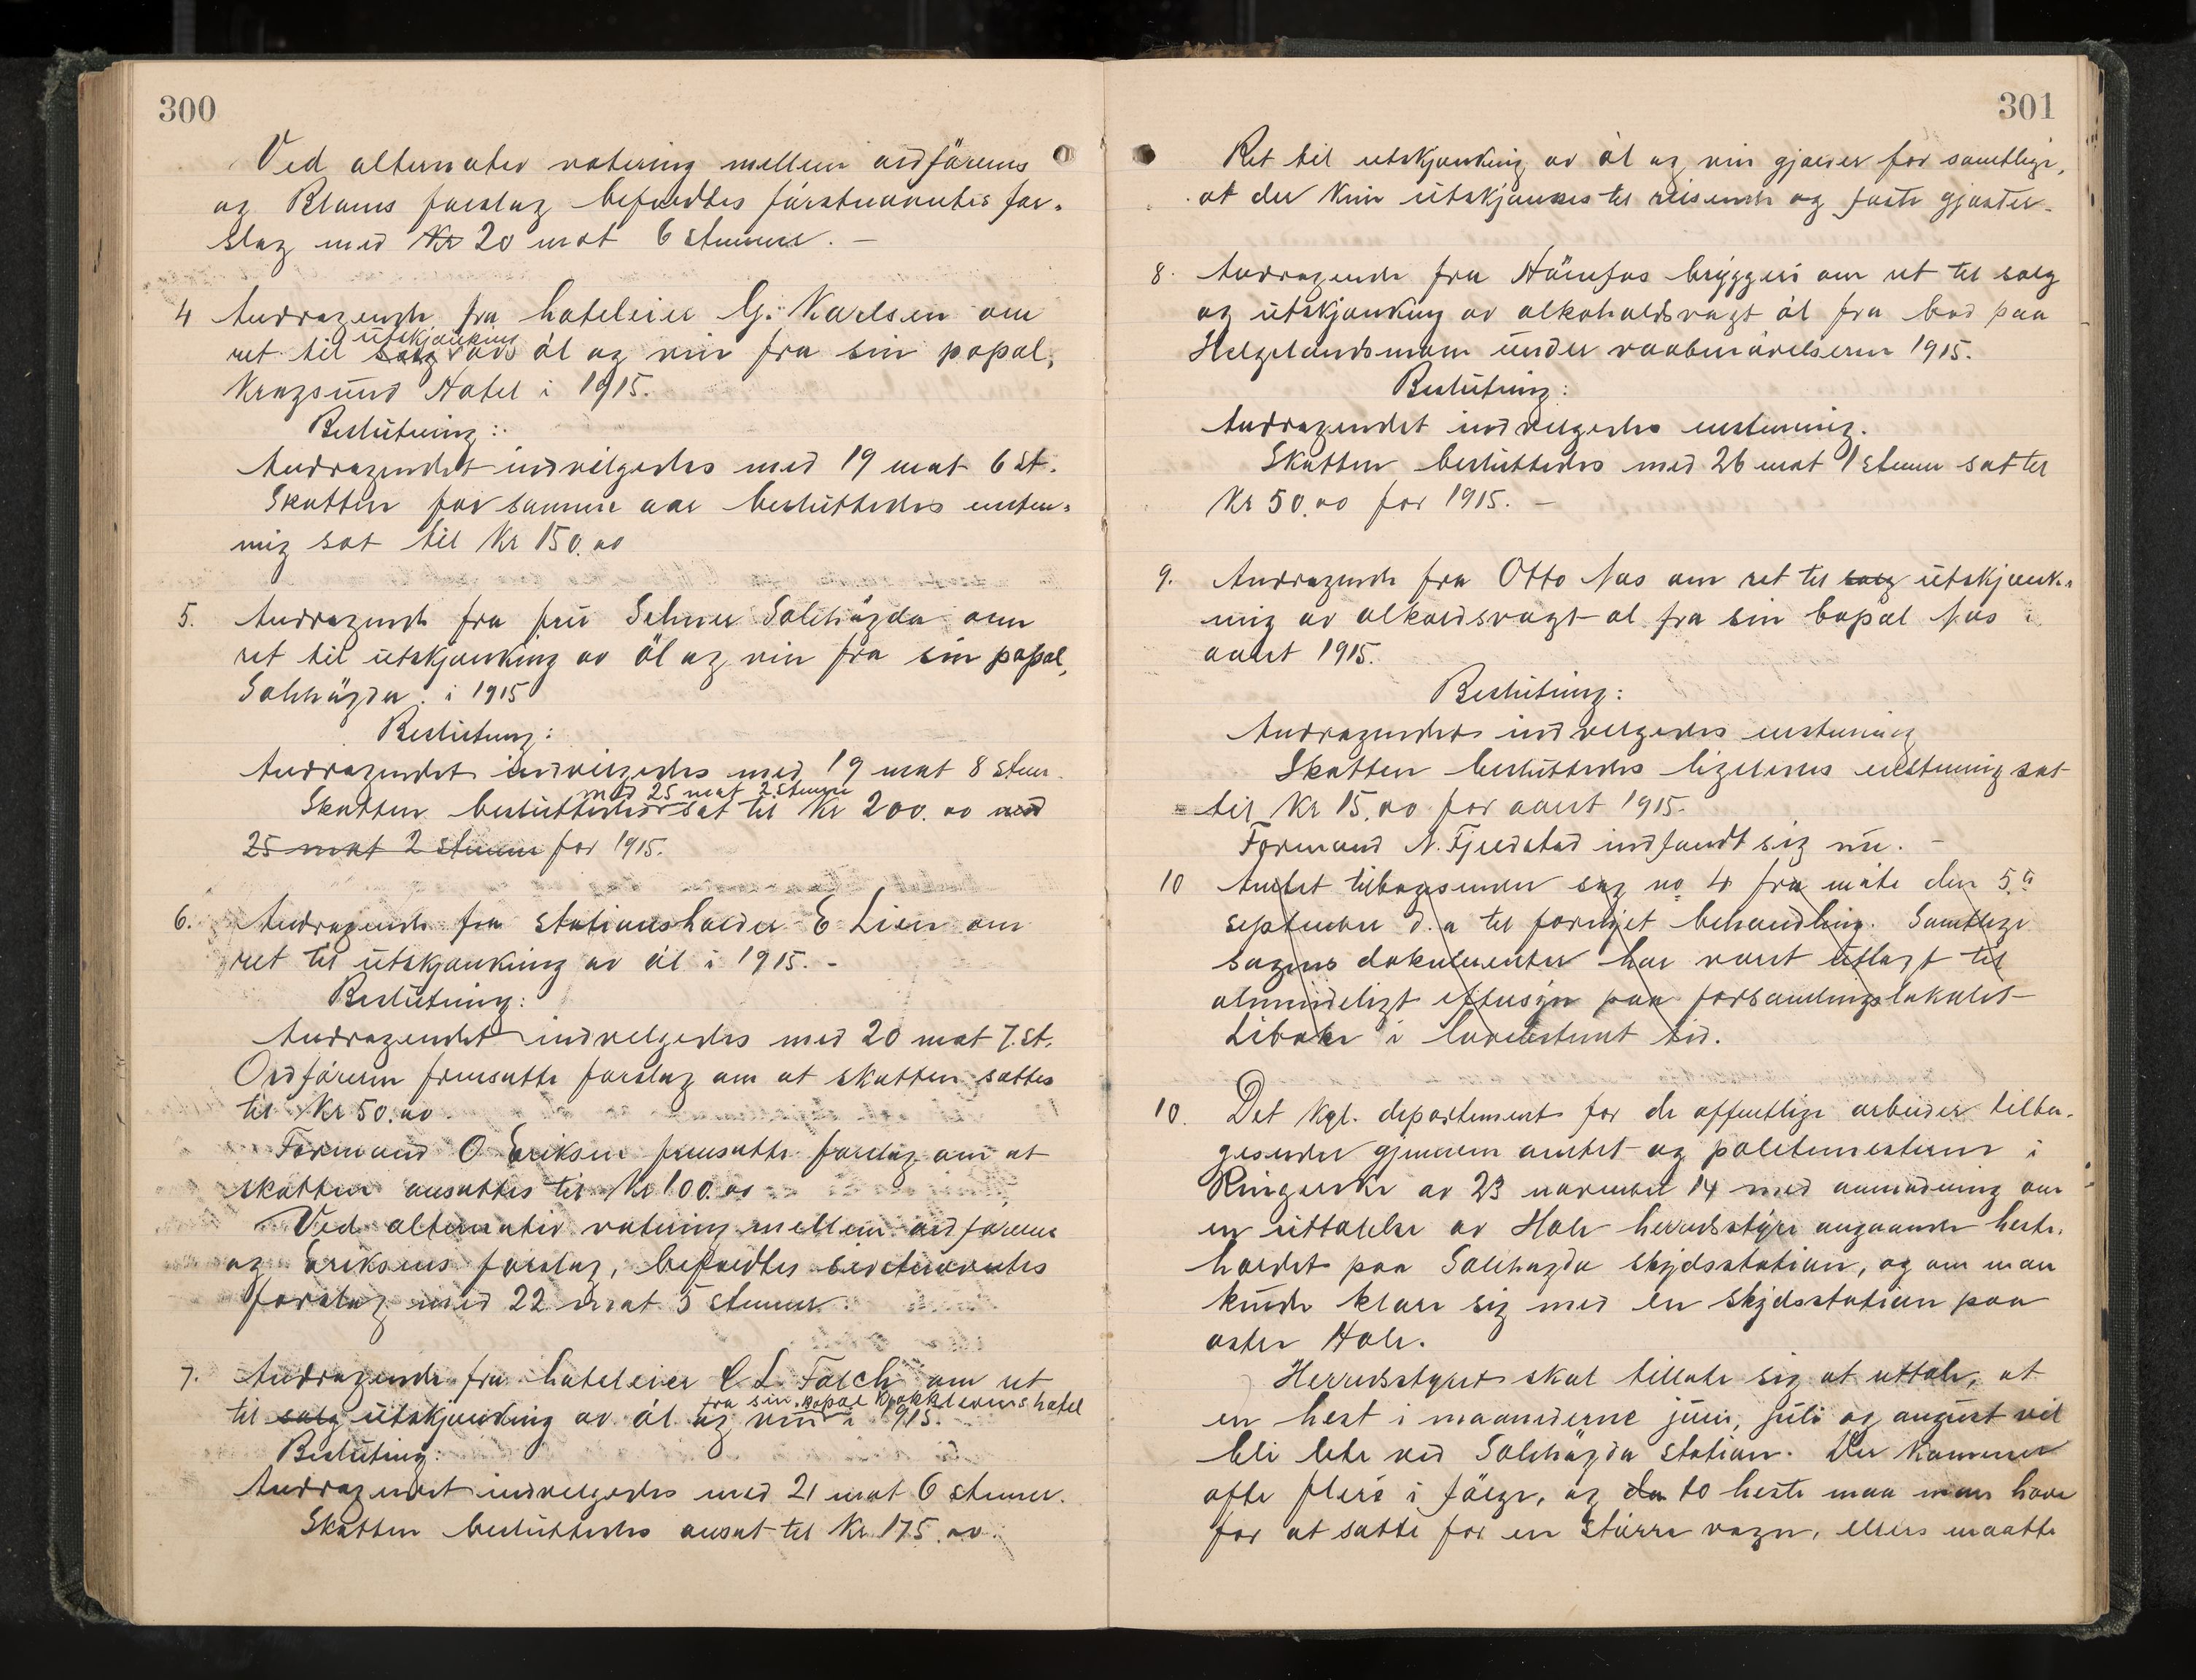 300
Ved alternativ votering mellem ordförerens
og Blams forslag befaldtes förstnævntes for-
slag med Kr 20 mot 6 stemmer. —
4 Andragende fra hoteleier G. Karlsen om
utskjænking
ret til salg av öl og vin fra sin popæl,
Kragsund Hotel i 1915.
Beslutning:
Andragendet indvilgedes med 19 mot 6 st.
Skatten for samme aar besluttedes enstem-
mig sat til Kr 150.00
5. Andragende fra fru Solhögda om
ret til utskjænking av öl og vin fra sin popæl,
Solihögda i 1915
Beslutning:
Andragendet indvilgedes med 19 mot 8 stem.
med 25 mot 2 stemmer
Skatten besluttedes sat til Kr 200.00 med
25 mot 2 stemmer for 1915.
6. Andragende fra stationsholder E Lien om
ret til utskjænking av öl i 1915. -
Beslutning:
Andragendet indvilgedes med 20 mot 7 st.
Ordföreren fremsatte forslag om at skatten sættes
til Kr 50.00
Formand O Eriksen fremsatte forslag om at
skatten ansættes til Kr 100.00
Ved alternativ votering mellem ordförerens
og Eriksens forslag, befaldtes sidstnævntes
forslag med 22 mot 5 stemmer.
7. Andragende fra hoteleier C L Falch om ret
fra sin bopæl Kjokklevens hotel
til salg utskjænking av öl og vin i 1915.
Beslutning:
Andragendet indvilgedes med 21 mot 6 stemmer.
Skatten besluttedes ansat til Kr 175.00
301
Ret til utskjænking av öl og vin gjælder for samtlige,
at der kun utskjænkes til reisende og faste gjæster.
8. Andragende fra Hönefos bryggeri om ret til salg
og utskjænking av alkoholdsvagt öl fra bod paa
Helgelandsmoen under vaabenövelserne 1915.
Beslutning:
Andragendet indvilgedes enstemmig.
Skatten besluttedes med 26 mot 1 stemme sat til
Kr 50.00 for 1915. —
9. Andragende fra Otto Næs om ret til salg utskjænk-
ning av alkoldsvagt öl fra sin bopæl Næs i
aaret 1915.
Beslutning:
Andragendet indvilgedes enstemmig
Skatten besluttedes ligeledes enstemmig sat
til Kr 15.00 for aaret 1915.
Formand N. Fjeldstad indfandt sig nu. —
10 Amtet tilbagesender sag no 4 fra möte den 5te
september d. a til fornyet behandling. Samtlige
sagens dokumenter har været utlagt til
almindeligt eftersyn paa forsamlingslokalet
Libakke i lovbestemt tid.
10. Det kgl. departement for de offentlige arbeider tilba-
gesender gjennem amtet og politimesteren i
Ringerike av 23 november 14 med anmodning om
en uttalelse av Hole herredsstyre angaaende heste-
holdet paa Solihögda skydsstation, og om man
kunde klare sig med en skydsstation paa
östre Hole.
Herredsstyret skal tillate sig at uttale, at
en hest i maanederne juni, juli og august vil
bli lite ved Solihögda station. Der kommer
ofte flere i fölge, og da to heste maa man have
for at sætte for en större vogn, ellers maatte